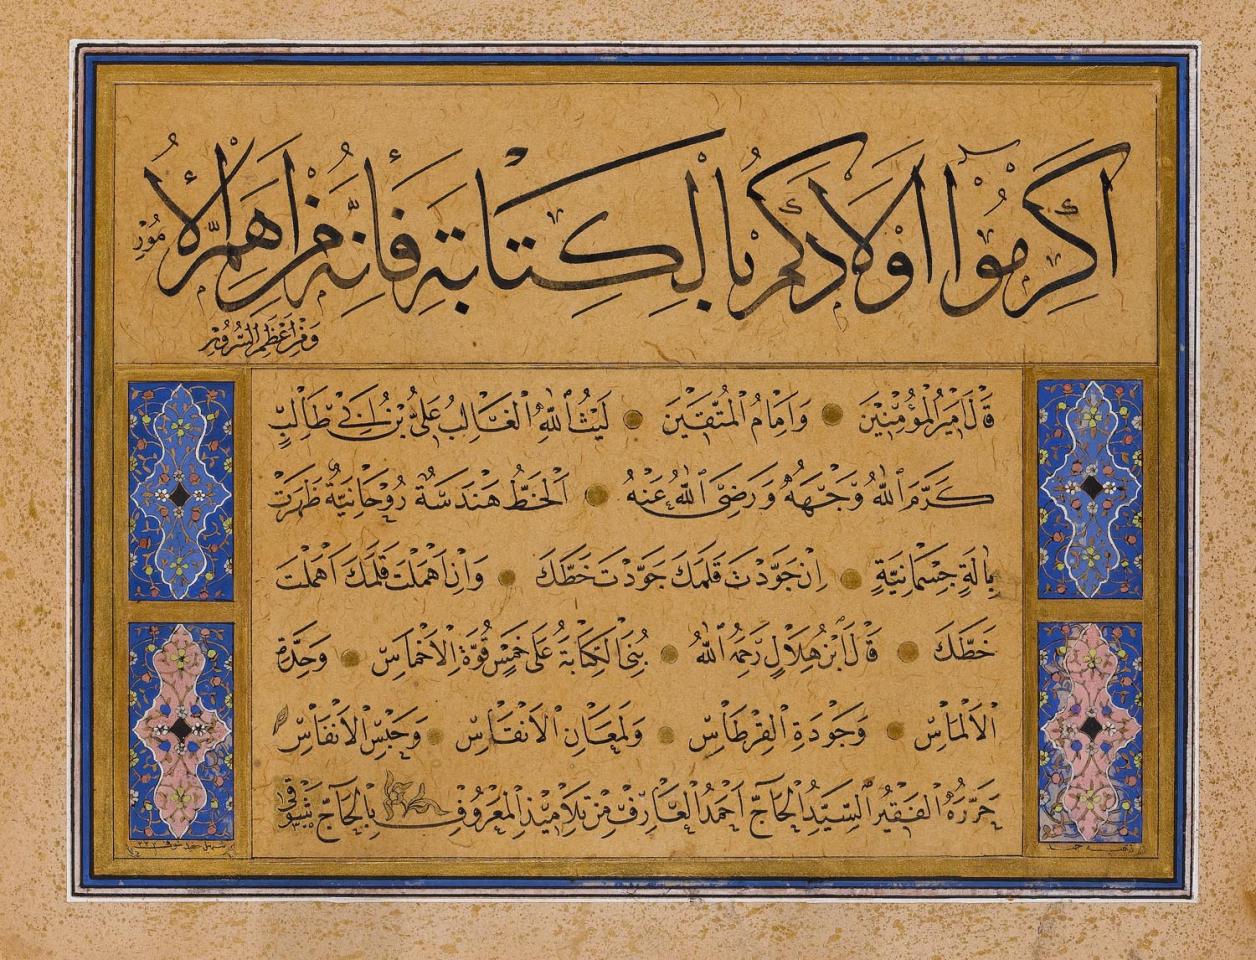 اَكْرِمُوْا اَوْلَادَكُمْ بِالْكِتَابَةِ فَاِنَّهُ مِنْ اَهَمِّ الْاُمُوْرِ
وَمِنْ اَعْظَمِ السُّرُوْرِ
قَالَ اَمِيْرُ الْمُؤْمِنِيْنَ وَاِمَامُ الْمُتَّقِيْنَ لَيْثُ اللّٰهِ الْغَالِبُ عَلِيُّ بْنُ اَبِيْ طَالِبٍ
كَرَّمَ اللّٰهُ وَجْهَهُ وَرَضِيَ اللّٰهُ عَنْهُ اَلْخَطُّ هَنْدَسَةٌ رُوْحَانِيَّةٌ ظَهَرَتْ
بِاٰلَةٍ جِسْمَانِيَّةٍ اِنْ جَوَّدْتَ قَلَمَكَ جَوَّدْتَ خَطَّكَ وَاِنْ اَهْمَلْتَ قَلَمَكَ اَهْمَلْتَ
خَطَّكَ قَالَ ابْنُ هِلَالٍ رَحِمَهُ اللّٰهُ بُنِيَ الْكِتَابَةُ عَلَى خَمْسٍ قُوَّةِ الْاَخْمَاسِ وَحِدَّةِ
الْاَلْمَاسِ وَجَوْدَةِ الْقِرْطَاسِ وَلَمَعَانِ الْاَنْقَاسِ وَحَبْسِ الْاَنْفَاسِ
حَرَّرَهُ الْفَقِيْرُ السَّيِّدُ الْحَاجّ اَحْمَدُ الْعَارِفُ مِنْ تَلَامِيْذِ الْمَعْرُوْفِ بِالْحَاجّ